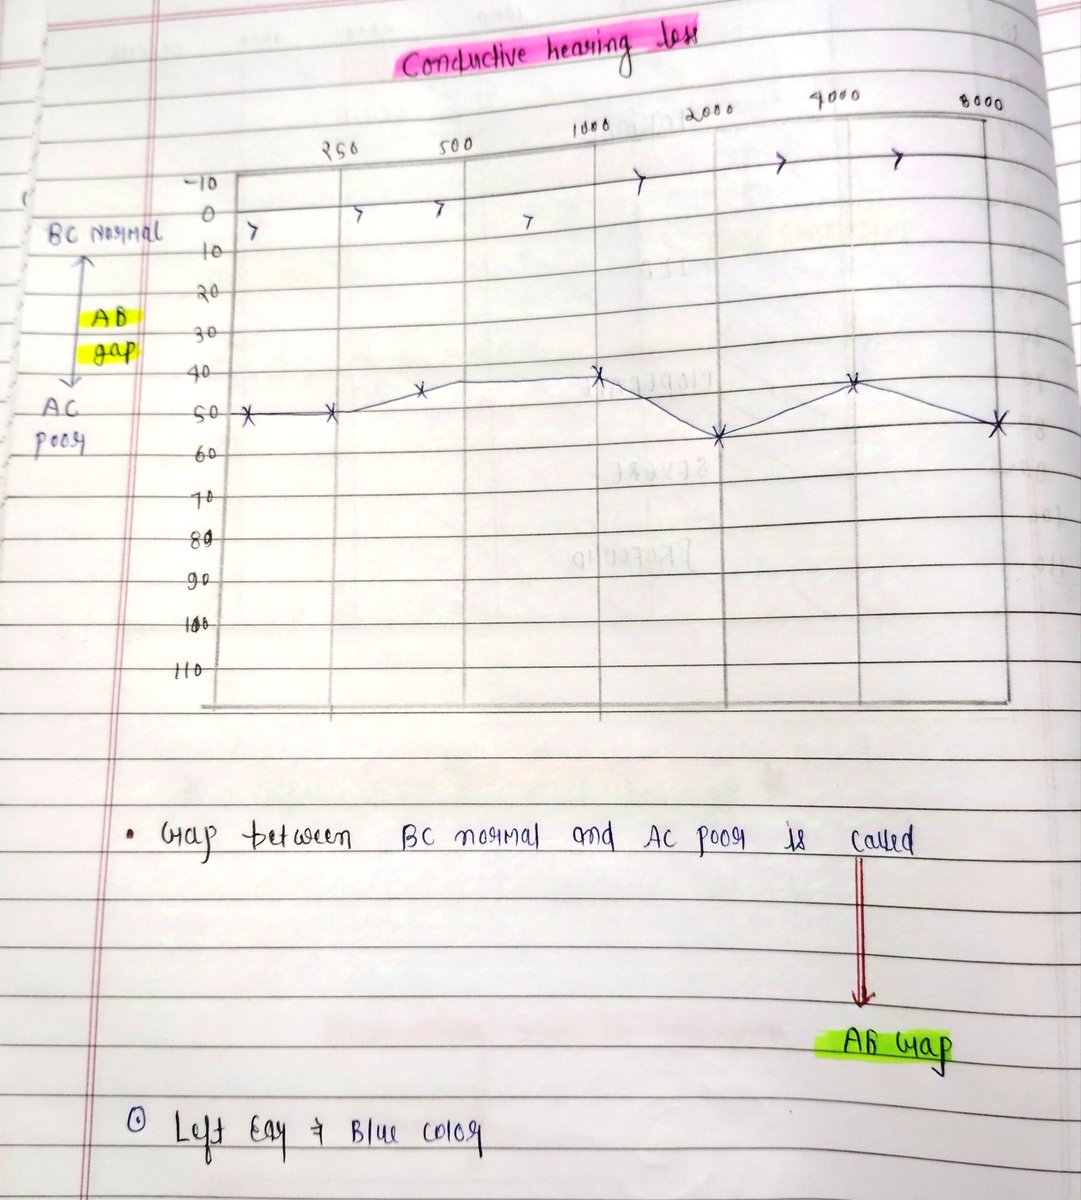 Conductive hearing loss
250 500 1000 2000 4000 8000
-10
0
BC Normal
10
20
AB
30
gap
40
AC
50
poor
60
70
80
90
100
110
• Gap between BC normal and AC poor is called
AB Gap
⊙ Left Ear & Blue color